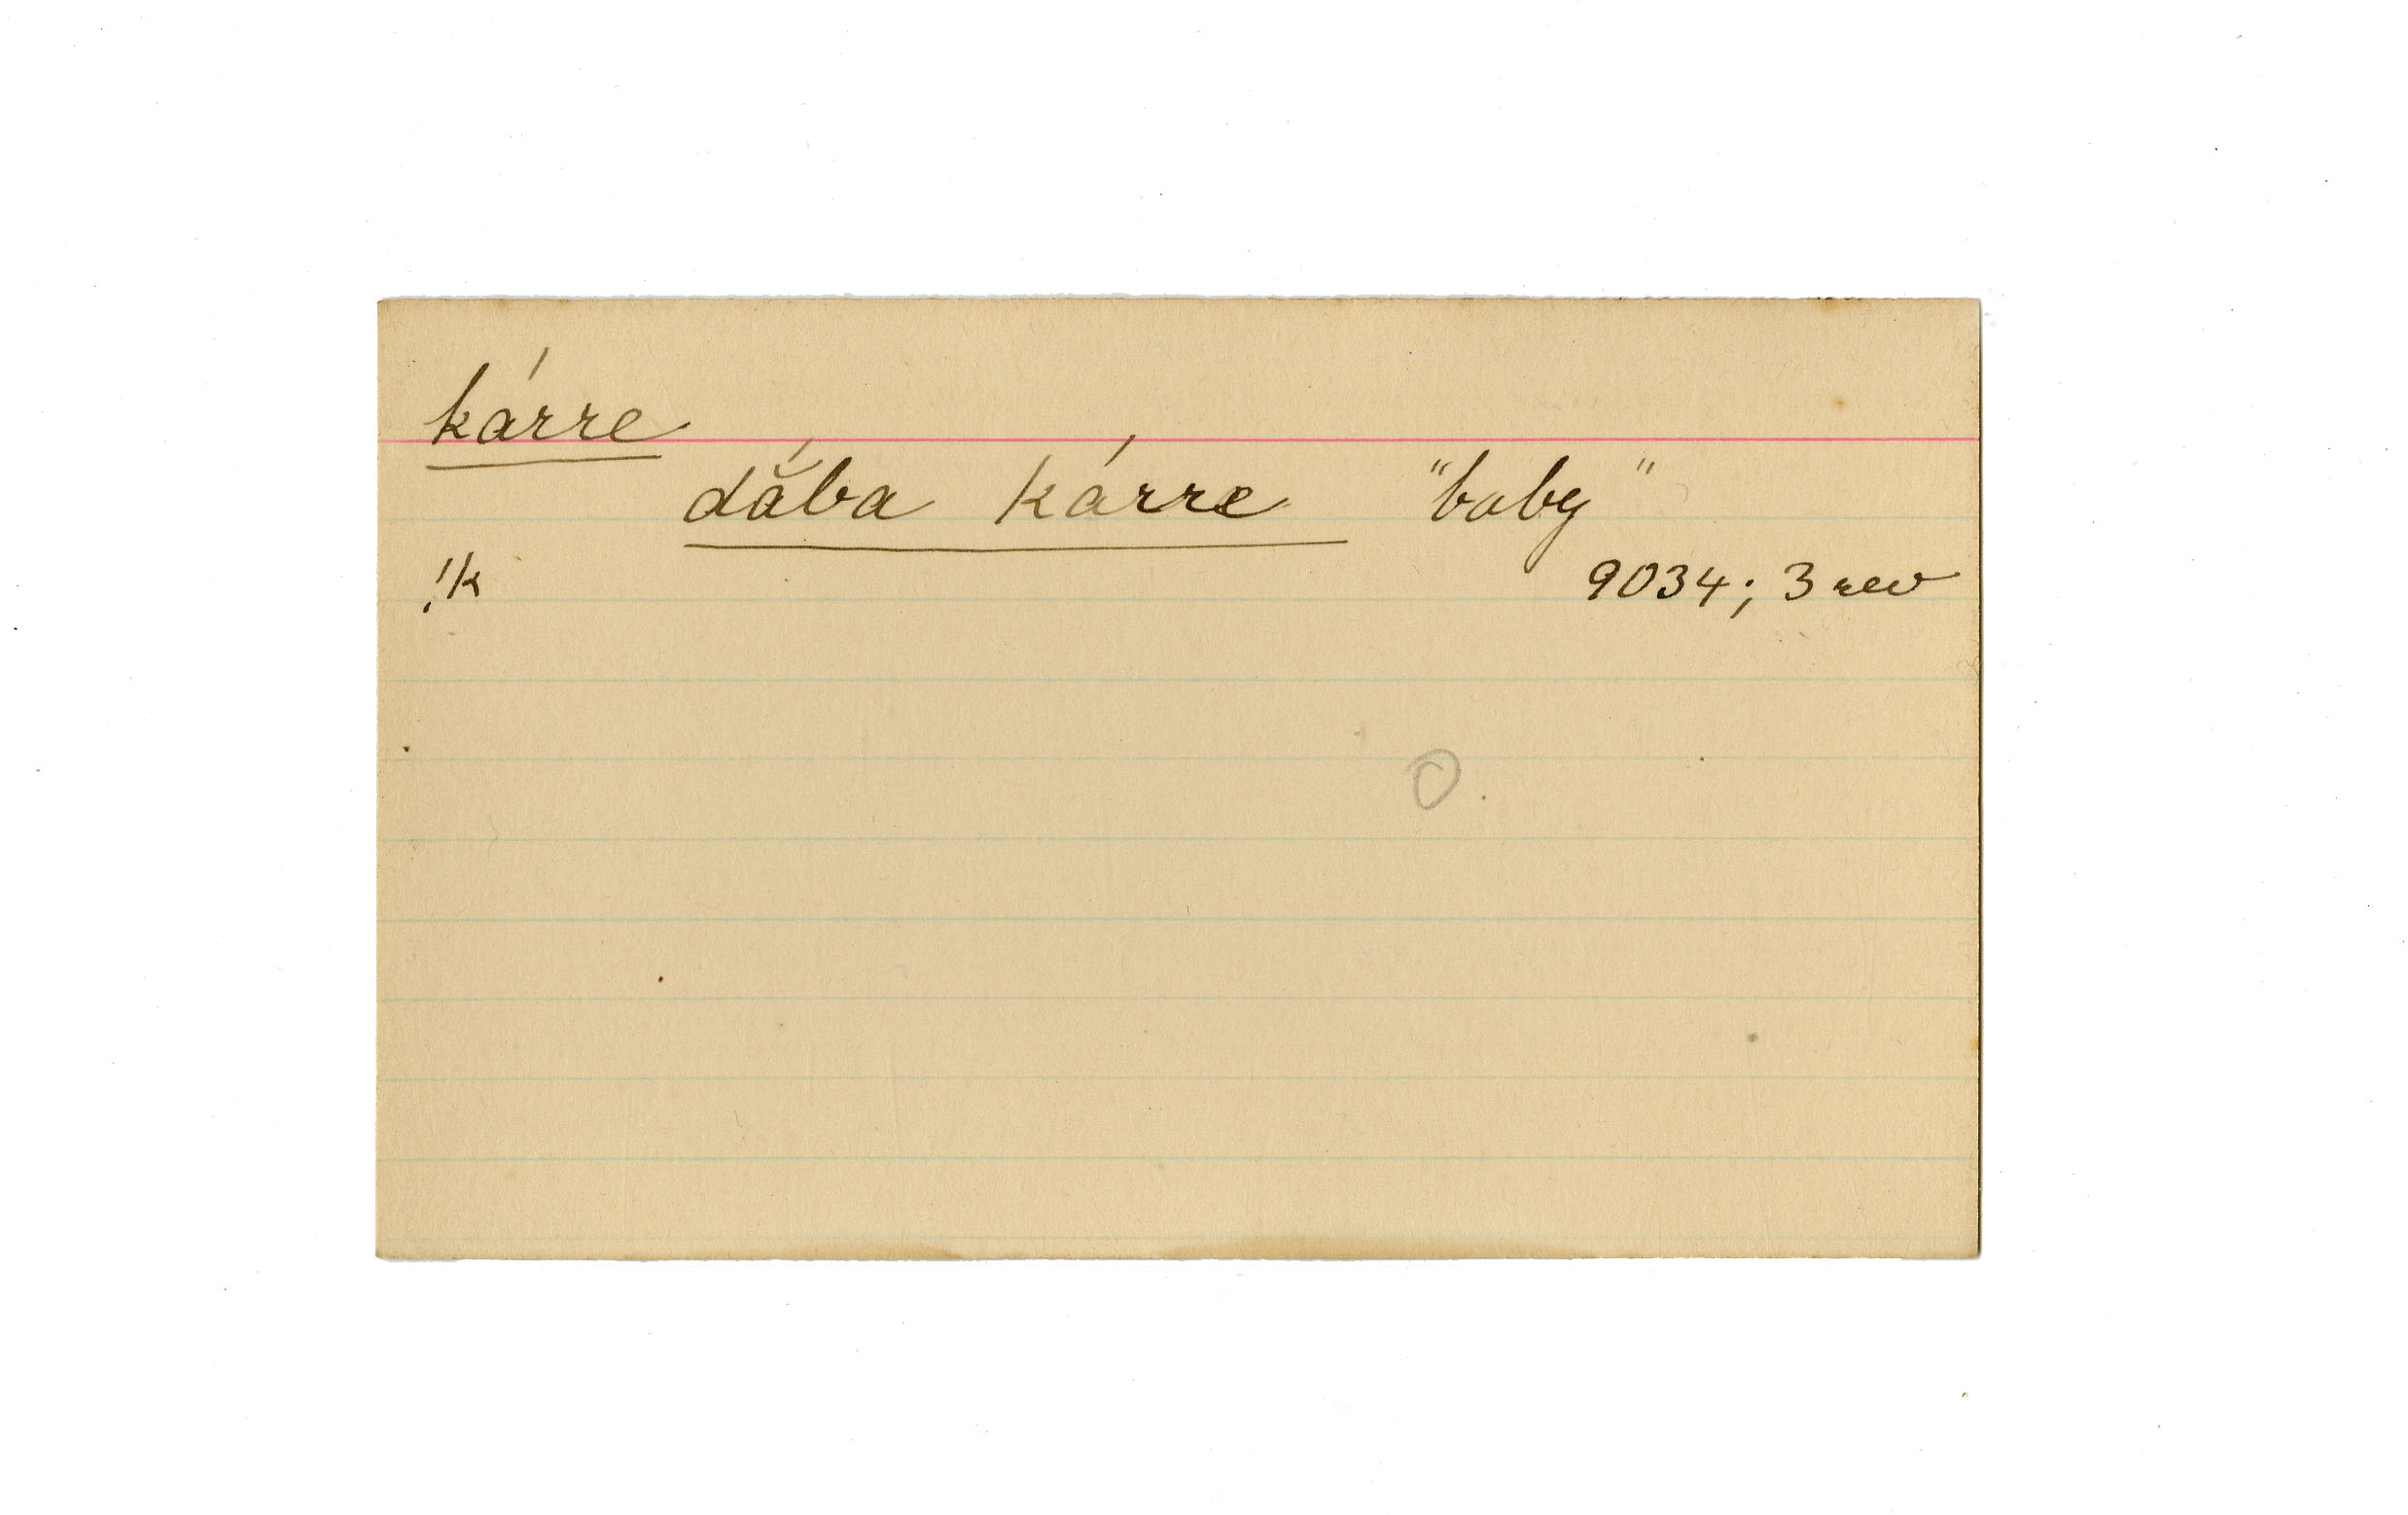 kárre
dắba kárre "baby"
!k 9034; 3 rev
O.